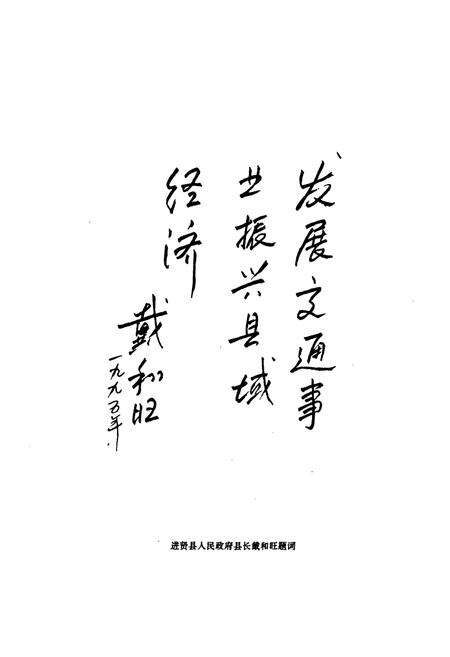 发展交通事
业振兴县域
经济
戴和旺
一九九五年.
进贤县人民政府县长戴和旺题词